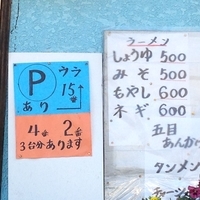 P ウラ
15m
あり
4台 2台
3台分あります
ラーメン
しょうゆ 500
みそ 500
もやし 600
ネギ 600
五目
あんか
タンメン
チャーシ